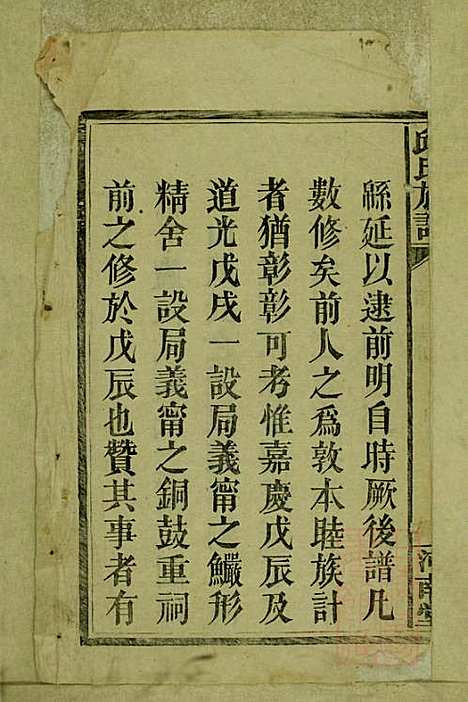 邱氏族譜
緜延以逮前明自時厥後譜凡
數修矣前人之爲敦本睦族計
者猶彰彰可考惟嘉慶戊辰及
道光戊戌一設局義甯之鱺形
精舍一設局義甯之銅鼓重祠
前之修於戊辰也贊其事者有
河南堂